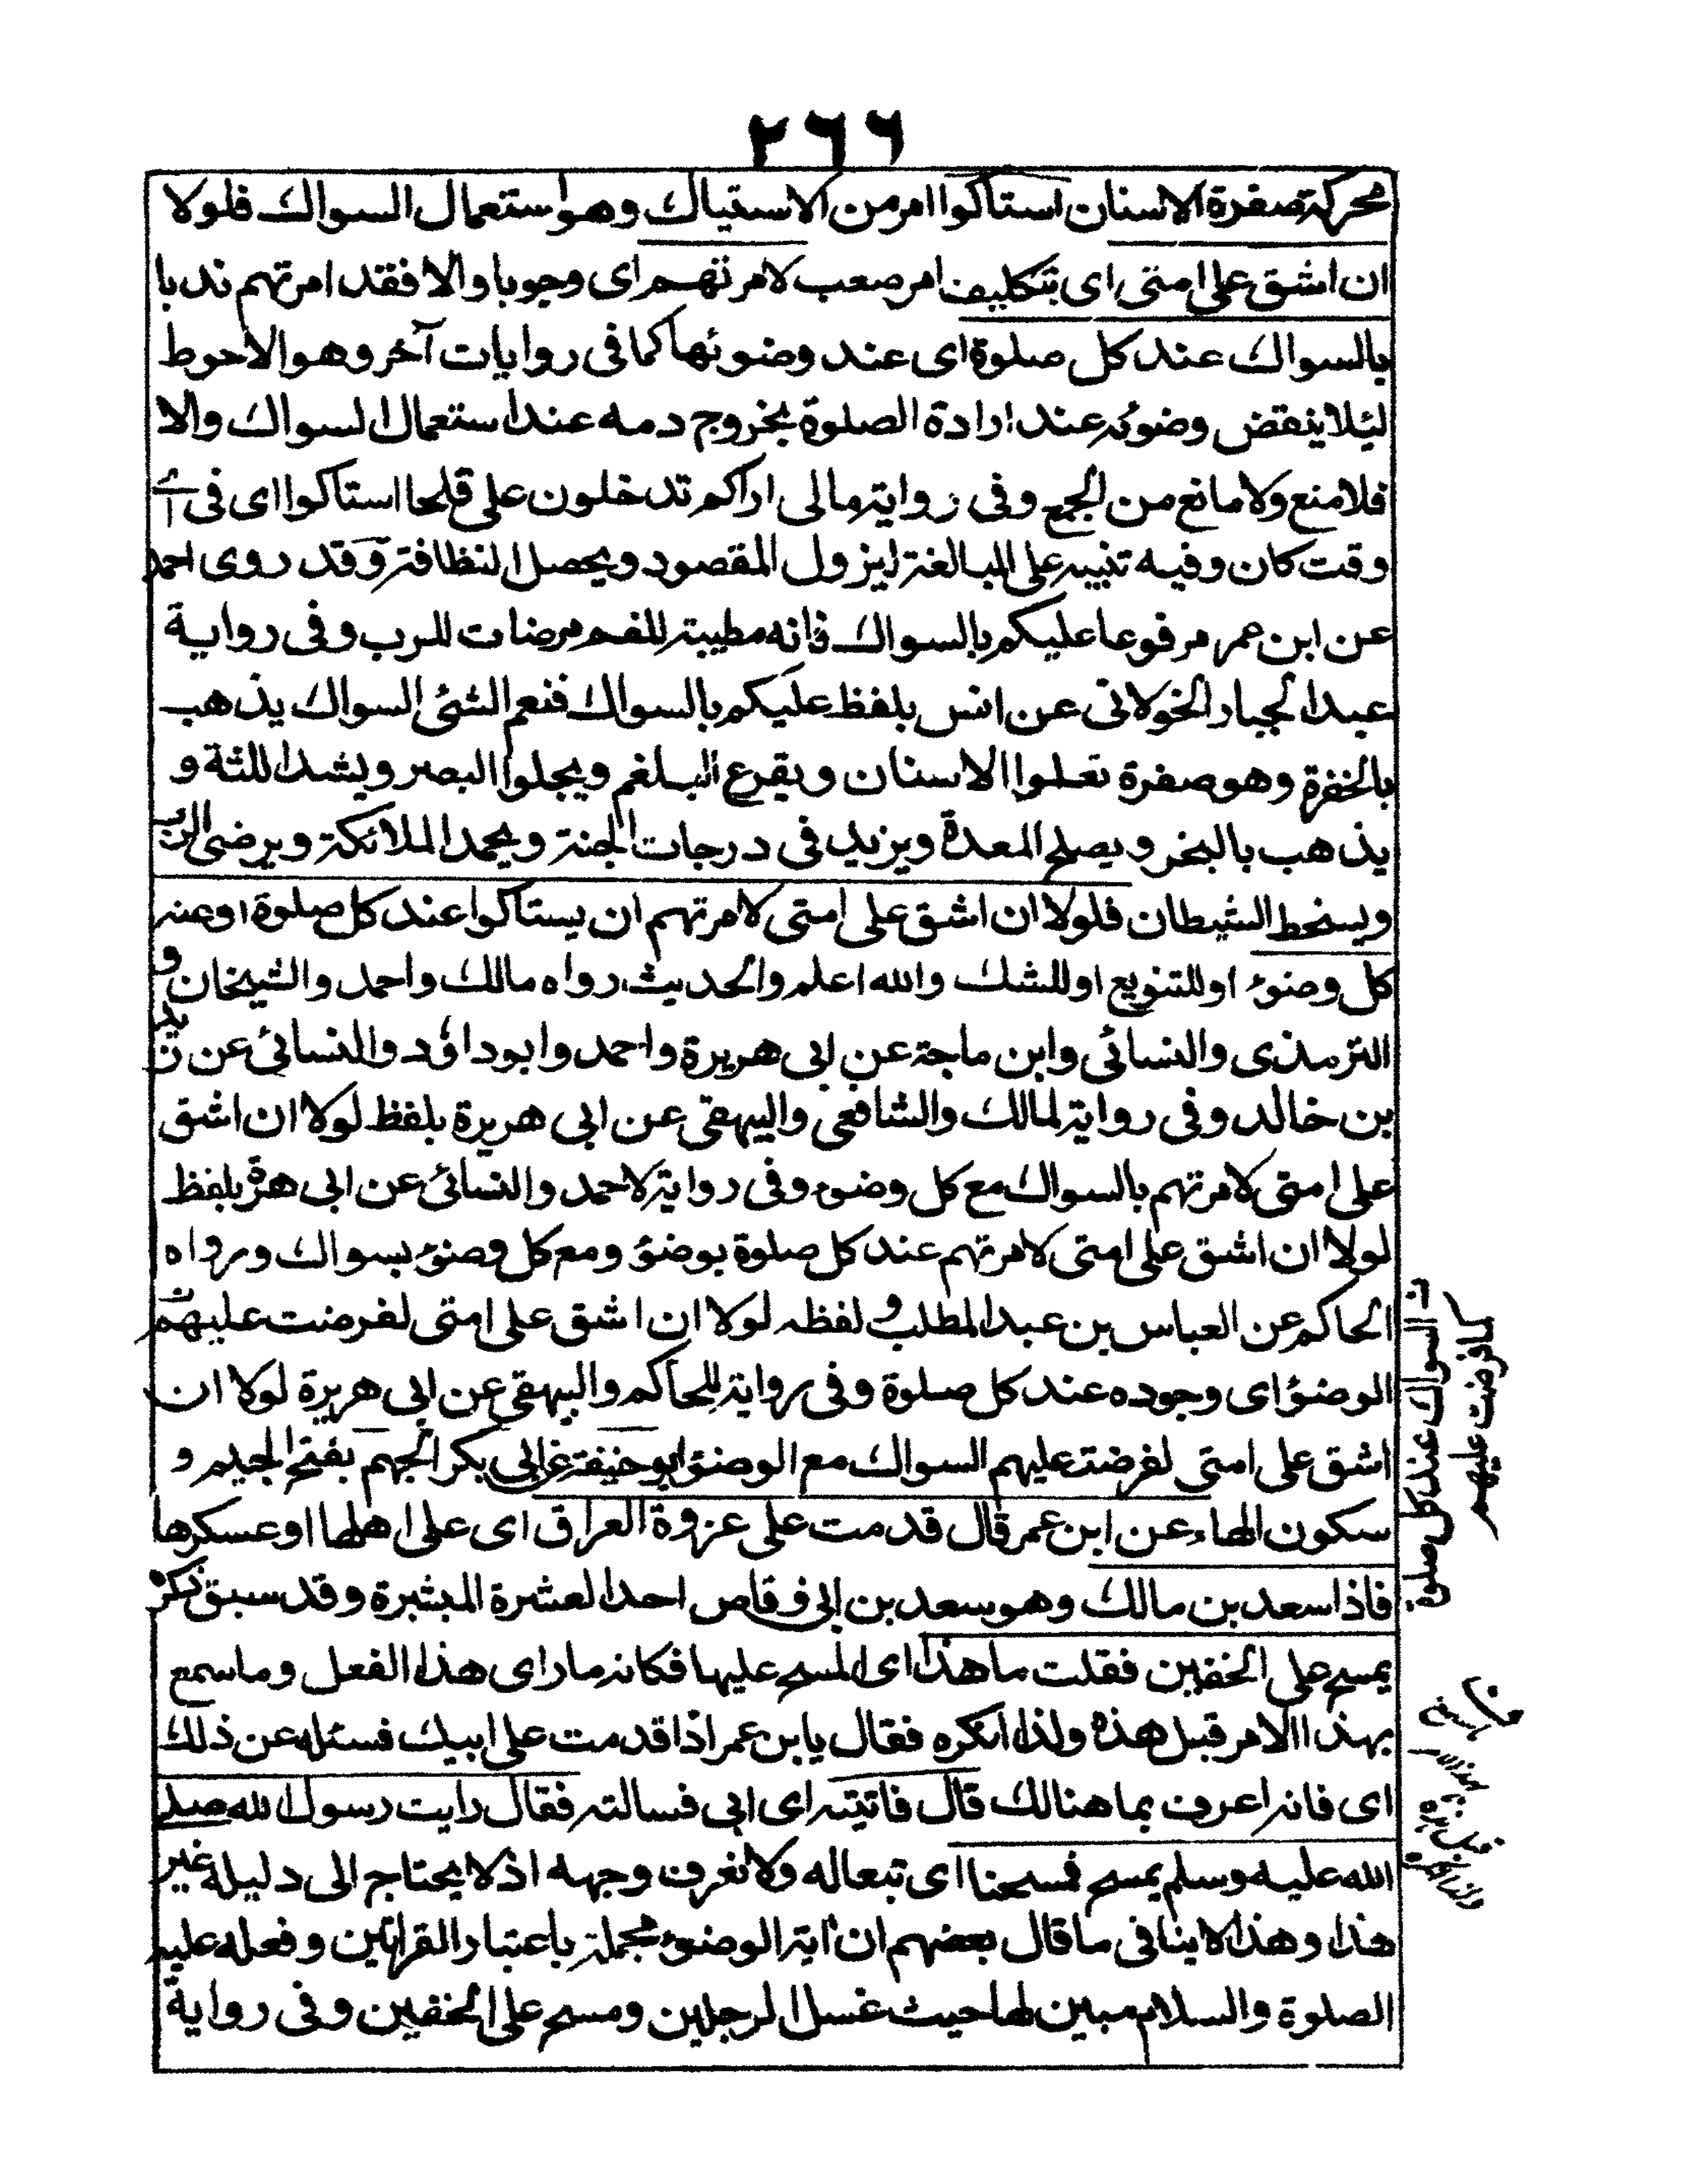 ٢٦٦
محركة صفرة الاسنان استاكوا امر من الاستياك وهو استعمال السواك فلولا
ان اشق على امتى اى بتكليف امر صعب لامرتهم اى وجوبا والا فقد امرتهم ندبا
بالسواك عند كل صلوة اى عند وضوئها كما فى روايات آخر وهو الاحوط
لئلا ينقض وضوئه عند ارادة الصلوة بخروج دمه عند استعمال السواك والا
فلا منع ولا مانع من الجمع وفى رواية مالى اراكم تدخلون على قلحا استاكوا اى فى اى
وقت كان وفيه تنبيه على المبالغة ليزول المقصود ويحصل النظافة وقد روى احمد
عن ابن عمر مرفوعا عليكم بالسواك فانه مطيبة للفم مرضات للرب وفى رواية
عبد الجبار الخولانى عن انس بلفظ عليكم بالسواك فنعم الشئ السواك يذهب
بالحفرة وهو صفرة تعلوا الاسنان ويقرع البلغم ويجلوا البصر ويشد اللثة و
يذهب بالبخر ويصلح المعدة ويزيد فى درجات الجنة ويحمد الملائكة ويرضى الرب
ويسخط الشيطان فلولا ان اشق على امتى لامرتهم ان يستاكوا عند كل صلوة او عند
كل وضوء او للتنويع او للشك والله اعلم والحديث رواه مالك واحمد والشيخان و
الترمذى والنسائى وابن ماجة عن ابى هريرة واحمد وابو داؤد والنسائى عن زيد
بن خالد وفى رواية لمالك والشافعى والبيهقى عن ابى هريرة بلفظ لولا ان اشق
على امتى لامرتهم بالسواك مع كل وضوء وفى رواية لاحمد والنسائى عن ابى هرة بلفظ
لولا ان اشق على امتى لامرتهم عند كل صلوة بوضؤ ومع كل وضوء بسواك ورواه
الحاكم عن العباس بن عبد المطلب ولفظه لولا ان اشق على امتى لفرضت عليهم
الوضؤ اى وجوده عند كل صلوة وفى رواية للحاكم والبيهقى عن ابى هريرة لولا ان
اشق على امتى لفرضت عليهم السواك مع الوضؤ ابو حنيفة عن ابى بكر الجهم بفتح الجيم و
سكون الهاء عن ابن عمر قال قدمت على غزوة العراق اى على اهلها او عسكرها
فاذا سعد بن مالك وهو سعد بن ابى وقاص احد العشرة المبشرة وقد سبق ذكره
يمسح على الخفين فقلت ما هذا اى المسح عليها فكانه ما راى هذا الفعل وما سمع
بهذا الامر قبل هذه ولذا انكره فقال يا بن عمر اذا قدمت على ابيك فسئله عن ذلك
اى فانه اعرف بما هنالك قال فاتيته اى ابى فسالته فقال رايت رسول الله صلى
الله عليه وسلم يمسح فمسحنا اى تبعا له ولا نعرف وجهه اذ لا يحتاج الى دليله غير
هذا وهذا لا ينافى ما قال بعضهم ان اية الوضوء مجملة باعتبار القراتين وفعله عليه
الصلوة والسلام مبين لها حيث غسل الرجلين ومسح على الخفين وفى رواية
السواك عند كل صلوة
كما فرضت عليهم